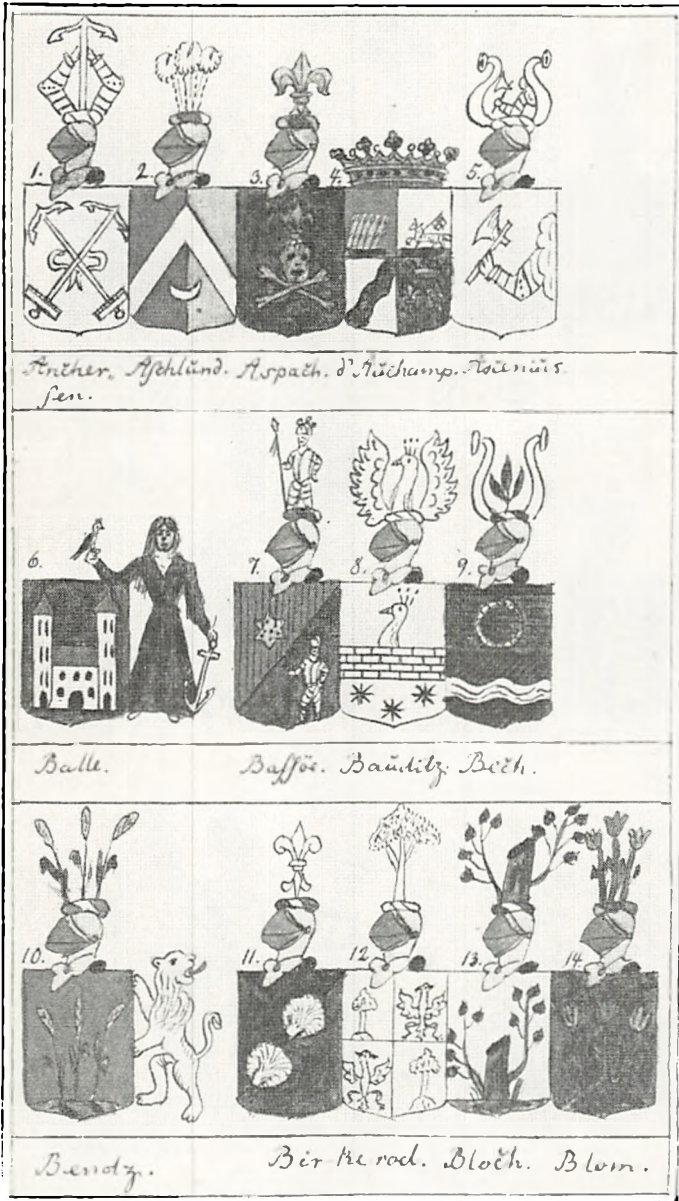 1. 2. 3. 4. 5.
Ancher, Aschlund. Aspach. d'Auchamp.
sen.
6. 7. 8. 9.
Balle. Bassöe. Bauditz. Bech.
10. 11. 12. 13. 14.
Bendz. Birkerod. Bloch. Blom.